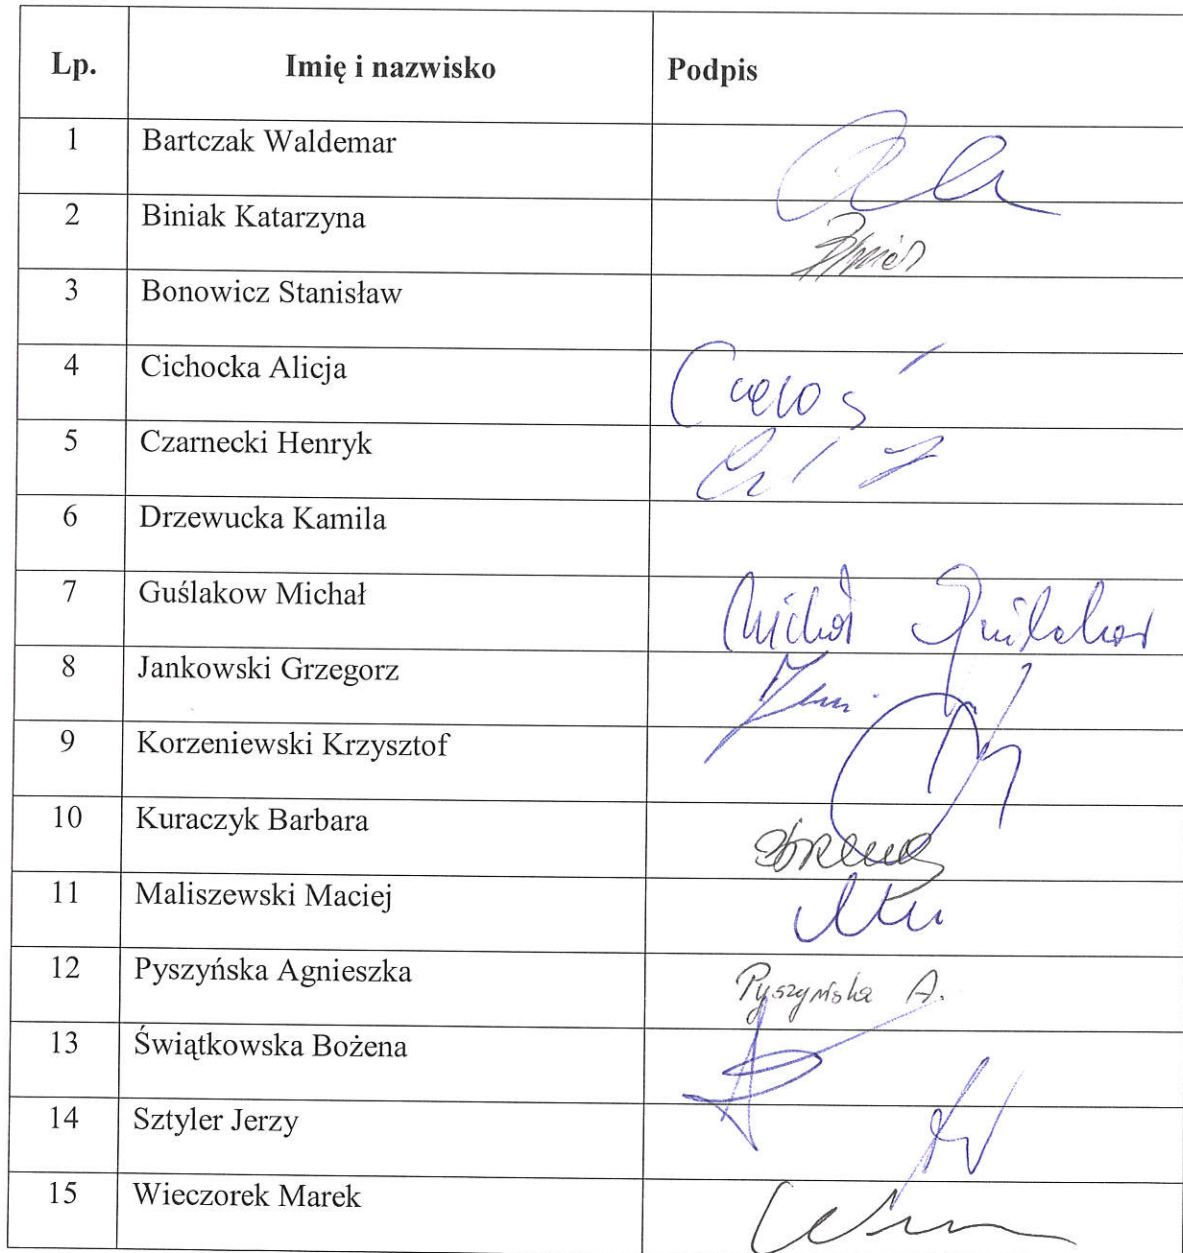 Lp. Imię i nazwisko Podpis
1 Bartczak Waldemar
2 Biniak Katarzyna
3 Bonowicz Stanisław
4 Cichocka Alicja
5 Czarnecki Henryk
6 Drzewucka Kamila
7 Guślakow Michał Michał Guślakow
8 Jankowski Grzegorz
9 Korzeniewski Krzysztof
10 Kuraczyk Barbara
11 Maliszewski Maciej
12 Pyszyńska Agnieszka Pyszyńska A.
13 Świątkowska Bożena
14 Sztyler Jerzy
15 Wieczorek Marek